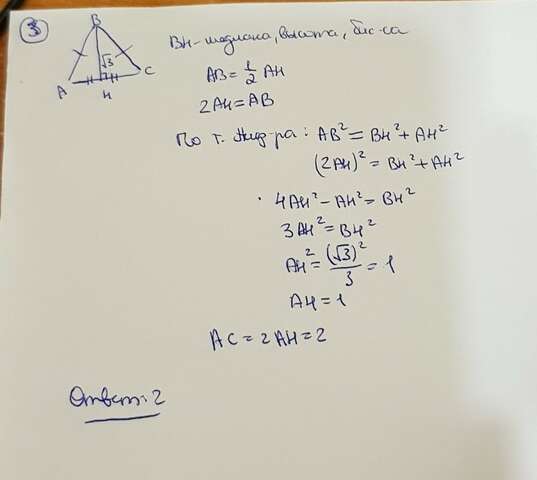 3
B
√3
A
C
H
BH - медиана, высота, бис-са
AB = 1/2 AH
2AH = AB
По т. Пифагора: AB² = BH² + AH²
(2AH)² = BH² + AH²
4AH² - AH² = BH²
3AH² = BH²
AH² = (√3)²/3 = 1
AH = 1
AC = 2AH = 2
Ответ: 2